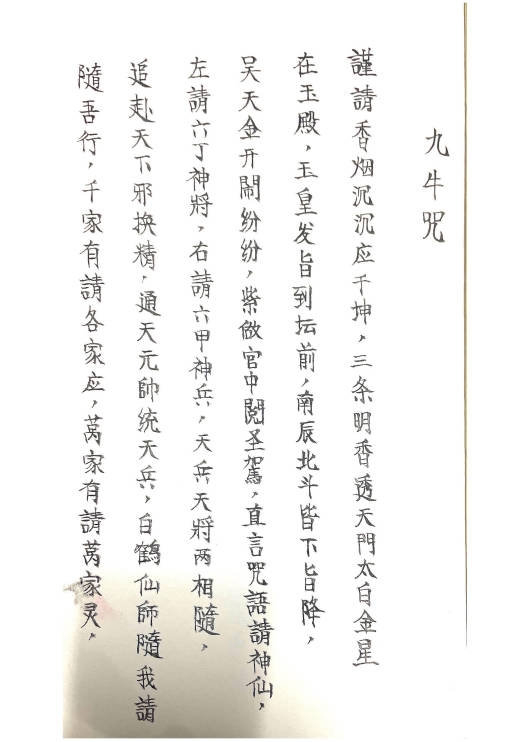 九牛咒
謹請香烟沉沉应千坤，三条明香透天門太白金星
在玉殿，玉皇发旨到坛前，南辰北斗皆下旨降，
吴天金开鬧纷纷，紫做官中閲圣駕，直言咒語請神仙，
左請六丁神將，右請六甲神兵，天兵天將两相隨，
追赴天下邪换精，通天元帥统天兵，白鶴仙师隨我請
隨吾行，千家有請各家应，萬家有請萬家灵，